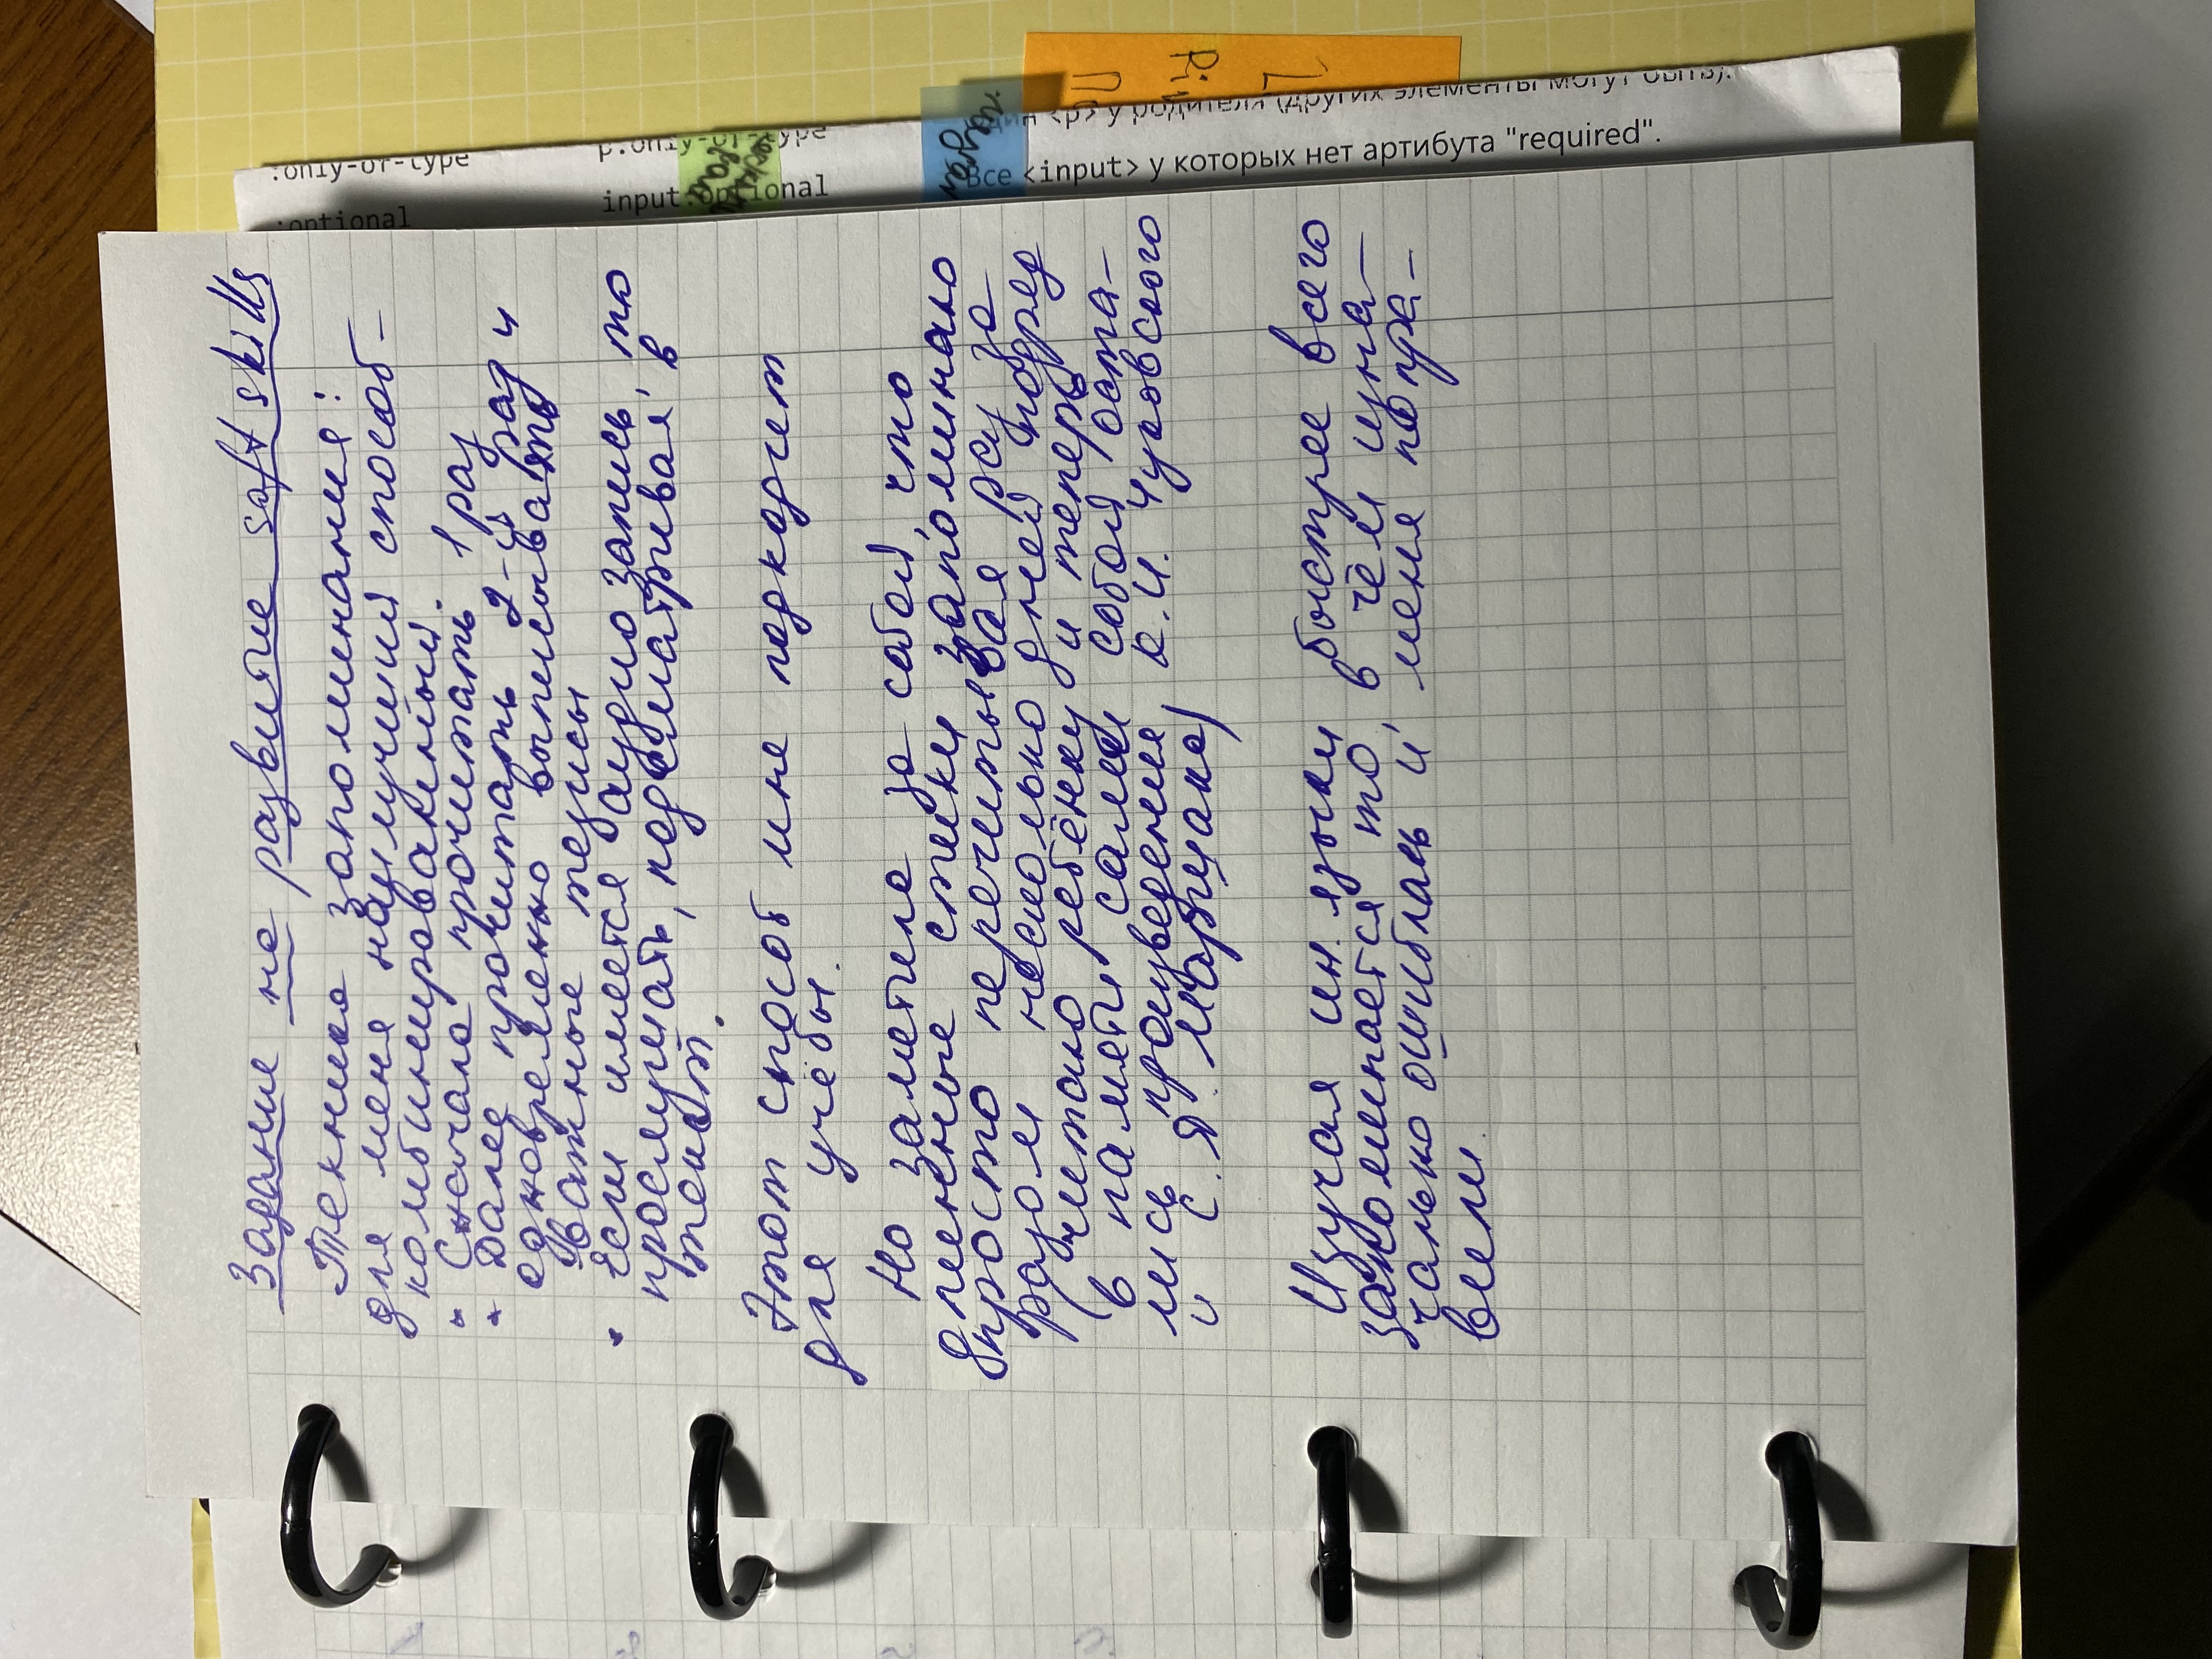 Задание на развитие soft skills
Техника запоминания:
для меня наилучший способ –
комбинированный.
- Сначала прочитать 1 раз
- Далее прочитать 2-й раз и
одновременно выписывать
важные тезисы
- Если имеется аудиозапись, то
прослушать, подсматривая в
текст.
Этот способ мне подходит
для учёбы.
Но заметила за собой, что
длинные стихи запоминаю
просто перечитывая раз за
разом несколько дней подряд
(читаю ребёнку и теперь
в памяти сами собой оста-
лись произведения К.И. Чуковского
и С.Я. Маршака)
Изучая ин. языки быстрее всего
запоминается то, в чём изна-
чально ошиблась и меня попра-
вили.
:only-of-type
:optional
p:only-of-type
input:optional
Все <input> у которых нет артибута "required".